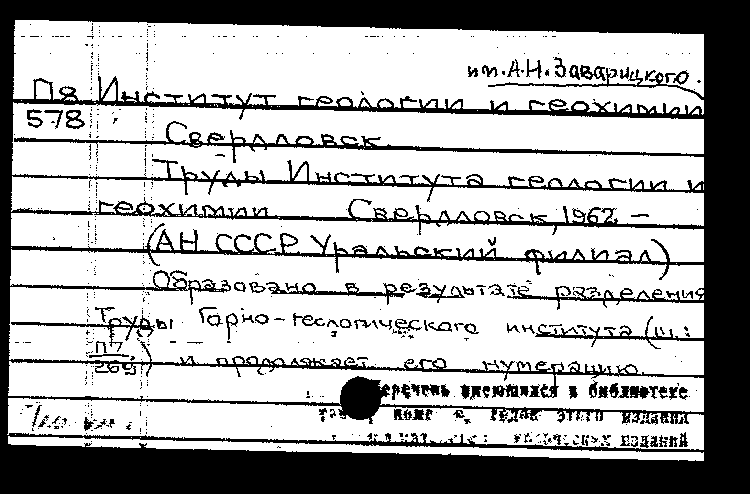 им. А.Н. Заварицкого.
П8 Институт геологии и геохимии
578
Свердловск.
Труды Института геологии и
геохимии. Свердловск, 1962 –
(АН СССР Уральский филиал)
Образовано в результате разделения
Труды Горно-геологического института (ш.:
П7/269) и продолжает его нумерацию.
Перечень имеющихся в библиотеке
томов, номеров, годов этого издания
изданий